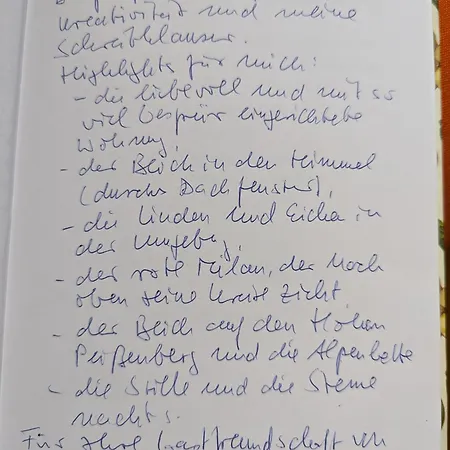 Kreativität und meine
Schreibklausur.
Highlights für mich:
- die liebevoll und mit so
viel Gespür eingerichtete
Wohnung,
- der Blick in den Himmel
(durchs Dachfenster),
- die Linden und Eichen in
der Umgebg,
- der rote Milan, der hoch
oben seine Kreise zieht,
- der Blick auf den Hohen
Peißenberg und die Alpenkette
- die Stille und die Sterne
nachts.
Für Ihre Gastfreundschaft von